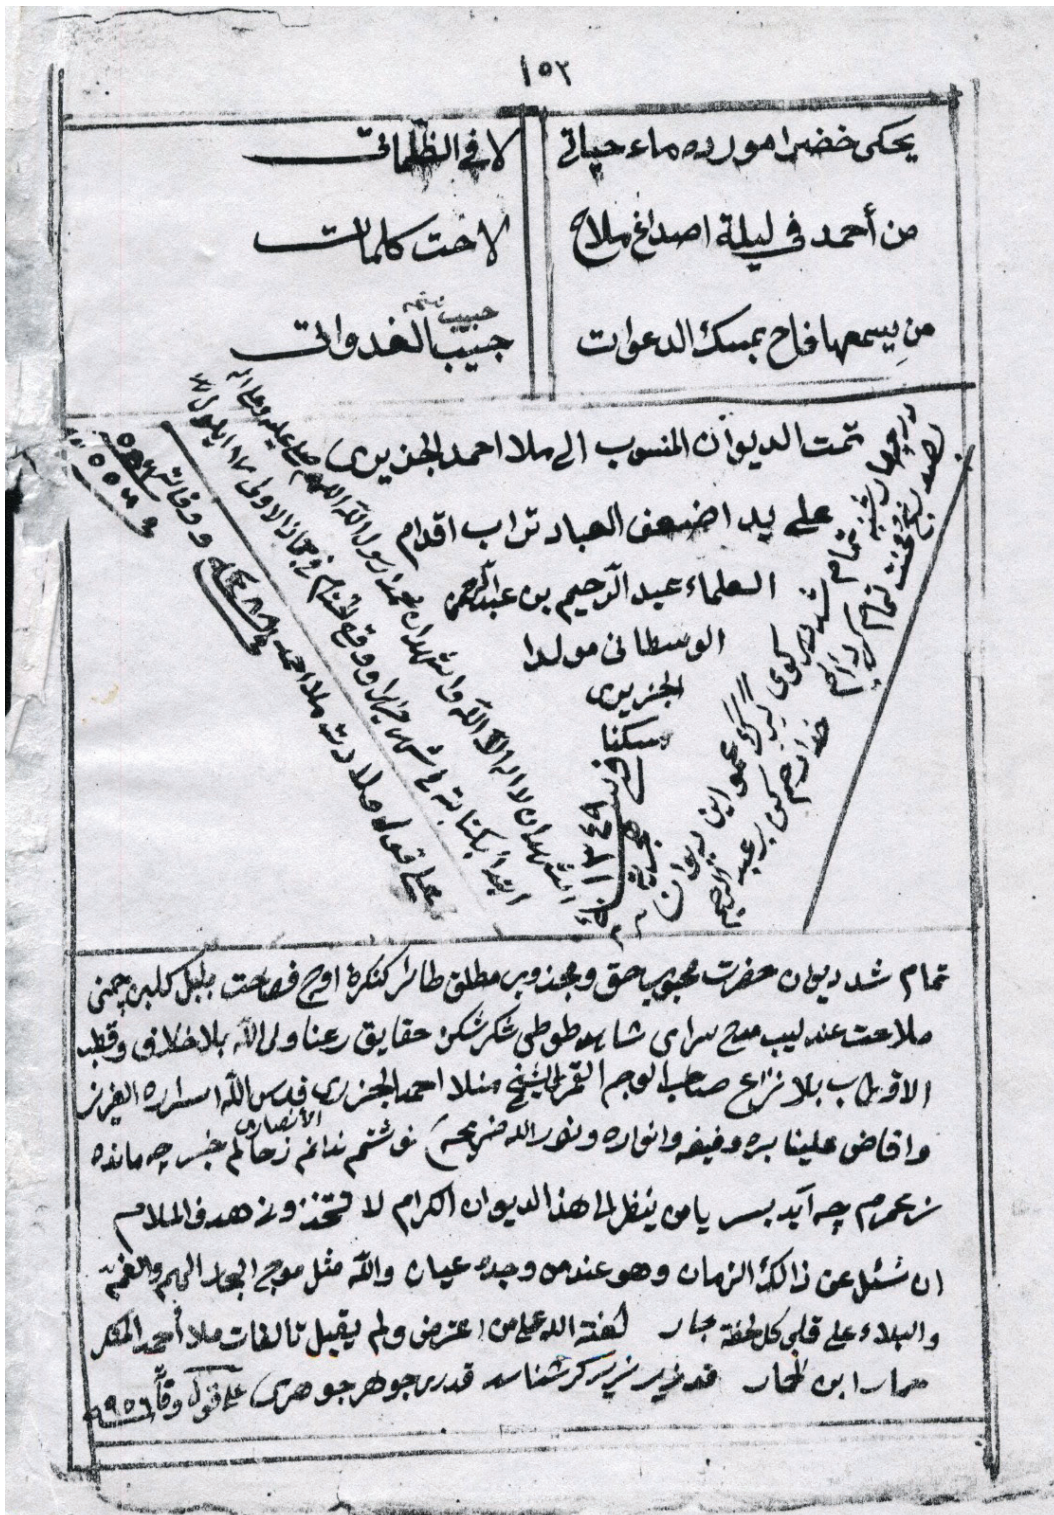 ١٥٢
يحكى خضرا مورده ماء حياتي لا في الظلماتى
من أحمد في ليلة اصداغ ملاح لاحت كلمات
من يسمعها فاح بمسك الدعوات حبيب الغدواتى
حبيب نسخه
تمت الديوان المنسوب الى ملا احمد الجزيرى
على يد اضعف العباد تراب اقدام
العلماء عبد الرحيم بن عبدالرحمن
الوسطانى مولدا
الجزيرى
سكنا
في سنة ١٣٤٩ هجرية
اشهد ان لا اله الا الله واشهد ان محمدا رسول الله اللهم صلى عليه وعلى آله
ابتدأ بكتابته في شهر ووقع اختتام في جماذ الاولى ايلول
على قول ولادت ملا احمد ووفاته
روز چهار شنبه تمام شد در كوى عمو اين ديوان
بصد رنج و محنت تمام كردم خدا رحم كن بر عبد الرحيم
تمام شد ديوان حضرت محبوب حق و مجذوب مطلق طائر كنكرۀ اوج فصاحت بلبل كلبن چمنى
ملاحت عندليب مدح سراى شاهد طوطى شكر شكن حقايق رعنا ولى الله بلا خلاف وقطب
الاقطاب بلا نزاع صاحب الوجه القمرى الشيخ منلا احمد الجزرى قدس الله اسراره العزيز
الأنصارى
وافاض علينا بره وفيضه وانواره ونور الله ضريحه نوشتم ندانم زحالم خبر چه مانده
زعمرم چه آيد بسر يا من ينظر الى هذا الديوان الكرام لا تتخذونى هدف الملام
ان شئل عن ذالك الزمان وهو عند من وجده عيان والله مثل موج البحار الهم والغم
والبلاء على قلبى كل لحظة جار لعنة الله على من اعترض ولم يقبل تالفات ملا أحمد المنكر
حمار ابن الحمار قدر زر زركر شناسد قدرى جوهر جوهرى على قول وفاته ٩٥٦